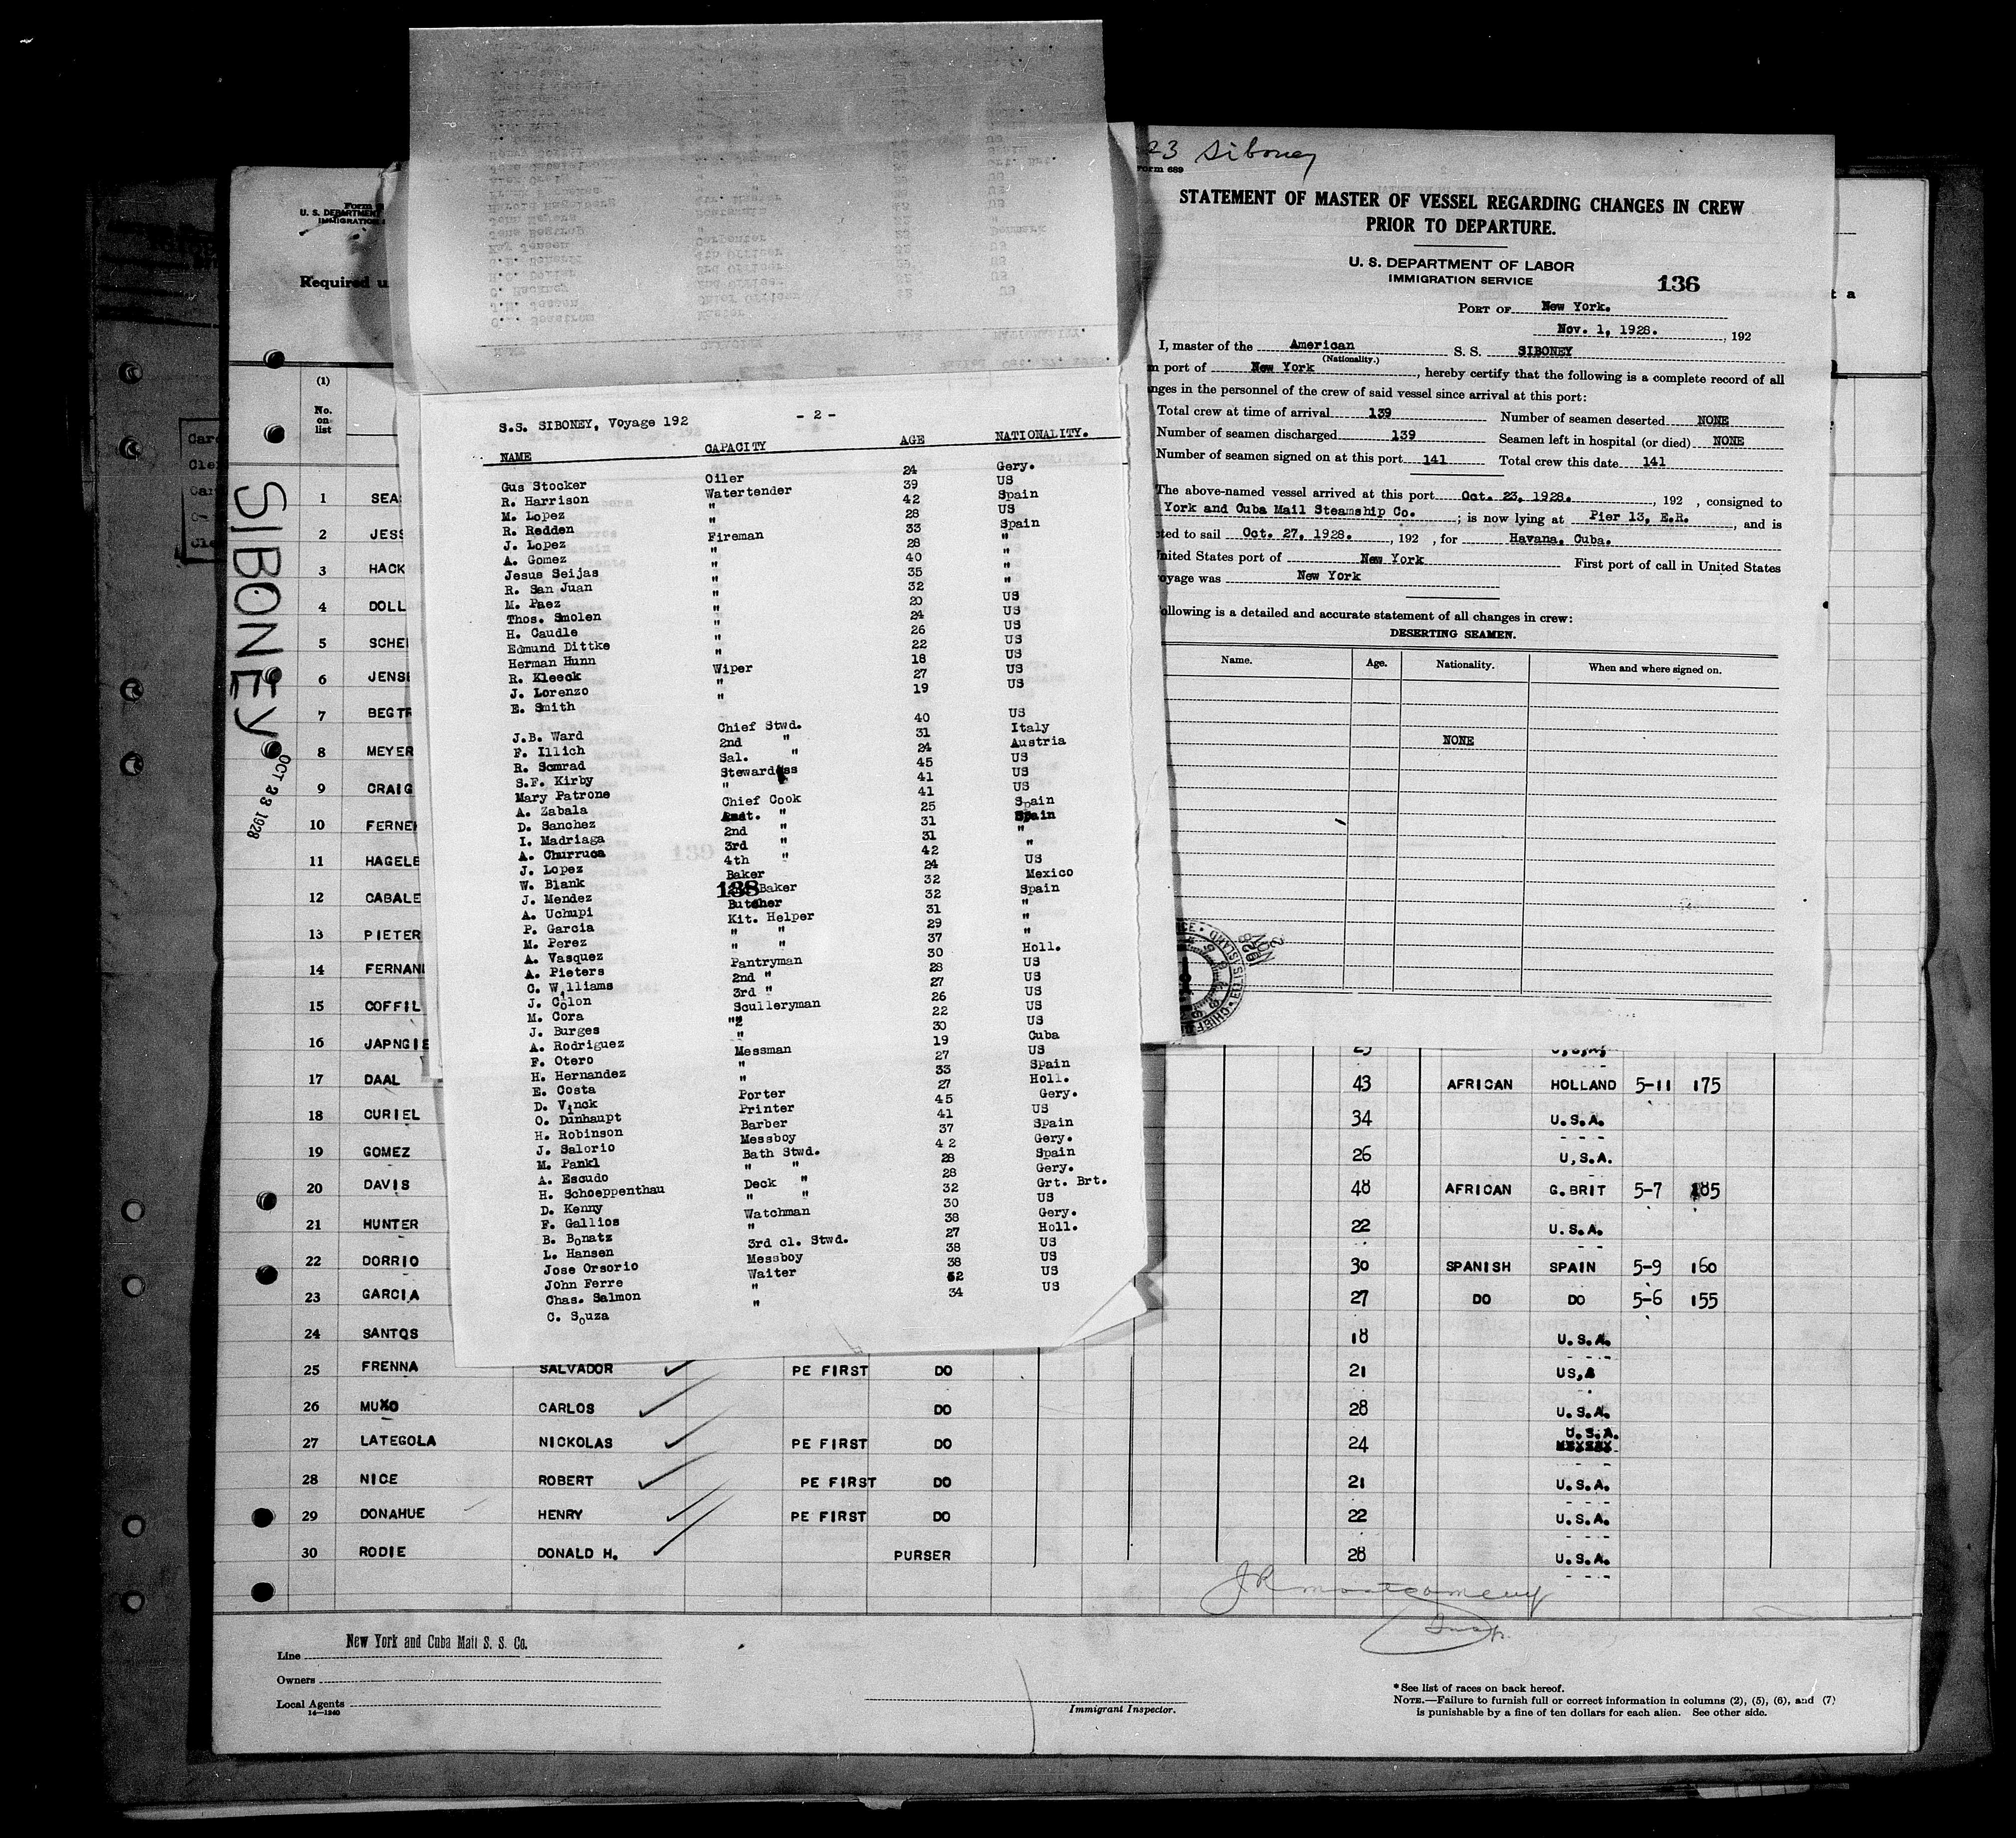 23 Siboney
Form 689
STATEMENT OF MASTER OF VESSEL REGARDING CHANGES IN CREW
PRIOR TO DEPARTURE.
U. S. DEPARTMENT OF LABOR
IMMIGRATION SERVICE
136
PORT OF New York.
Nov. 1, 1928. , 192
I, master of the American S. S. SIBONEY
(Nationality.)
port of New York , hereby certify that the following is a complete record of all
nges in the personnel of the crew of said vessel since arrival at this port:
Total crew at time of arrival 139 Number of seamen deserted NONE
Number of seamen discharged 139 Seamen left in hospital (or died) NONE
Number of seamen signed on at this port 141 Total crew this date 141
The above-named vessel arrived at this port Oct. 23, 1928. , 192 , consigned to
York and Cuba Mail Steamship Co. ; is now lying at Pier 13, E.R. , and is
cted to sail Oct. 27, 1928. , 192 , for Havana, Cuba.
United States port of New York First port of call in United States
oyage was New York
ollowing is a detailed and accurate statement of all changes in crew:
DESERTING SEAMEN.
Name. Age. Nationality. When and where signed on.
NONE
S.S. SIBONEY, Voyage 192 - 2 -
NAME CAPACITY AGE NATIONALITY.
Gus Stocker Oiler 24 Gery.
R. Harrison Watertender 39 US
M. Lopez " 42 Spain
R. Redden " 28 US
J. Lopez Fireman 33 Spain
A. Gomez " 28 "
Jesus Seijas " 40 "
R. San Juan " 35 "
M. Paez " 32 "
Thos. Smolen " 20 US
H. Caudle " 24 US
Edmund Dittke " 26 US
Herman Hunn " 22 US
R. Kleeck Wiper 18 US
J. Lorenzo " 27 US
E. Smith " 19 US
J.B. Ward Chief Stwd. 40 US
F. Illich 2nd " 31 Italy
R. Somrad Sal. " 24 Austria
S.F. Kirby Stewardess 45 US
Mary Patrone " 41 US
A. Zabala Chief Cook 41 US
D. Sanchez Asst. " 25 Spain
I. Madriaga 2nd " 31 Spain
A. Churruca 3rd " 31 "
J. Lopez 4th " 42 "
W. Blank Baker 24 US
J. Mendez Baker 32 Mexico
A. Uchupi Butcher 32 Spain
P. Garcia Kit. Helper 31 "
M. Perez " " 29 "
A. Vasquez " " 37 "
A. Pieters Pantryman 30 Holl.
C. Williams 2nd " 28 US
J. Colon 3rd " 27 US
M. Cora Sculleryman 26 US
J. Burges " 22 US
A. Rodriguez " 30 US
F. Otero Messman 19 Cuba
H. Hernandez " 27 US
E. Costa " 33 Spain
D. Vinck Porter 27 Holl.
O. Dunhaupt Printer 45 Gery.
H. Robinson Barber 41 US
J. Salorio Messboy 37 Spain
M. Pankl Bath Stwd. 42 Gery.
A. Escudo " " 28 Spain
H. Schoeppenthau Deck " 28 Gery.
D. Kenny " " 32 Grt. Brt.
F. Gallios Watchman 30 US
B. Bonatz " 38 Gery.
L. Hansen 3rd cl. Stwd. 27 Holl.
Jose Orsorio Messboy 38 US
John Ferre Waiter 38 US
Chas. Salmon " 52 US
C. Souza " 34 US
138
139
U. S. DEPARTMENT
IMMIGRATION
Required u
SIBONEY
OCT 23 1928
(1)
No.
on
list
1 SEA
2 JESS
3 HACK
4 DOLL
5 SCHE
6 JENS
7 BEGTR
8 MEYER
9 CRAIG
10 FERNE
11 HAGELB
12 CABALE
13 PIETER
14 FERNAN
15 COFFIL
16 JAPNGIE
17 DAAL 43 AFRICAN HOLLAND 5-11 175
18 CURIEL 34 U.S.A.
19 GOMEZ 26 U.S.A.
20 DAVIS 48 AFRICAN G.BRIT 5-7 185
21 HUNTER 22 U.S.A.
22 DORRIO 30 SPANISH SPAIN 5-9 160
23 GARCIA 27 DO DO 5-6 155
24 SANTOS 18 U.S.A.
25 FRENNA SALVADOR PE FIRST DO 21 US,A
26 MUXO CARLOS DO 28 U.S.A.
27 LATEGOLA NICKOLAS PE FIRST DO 24 U.S.A.
28 NICE ROBERT PE FIRST DO 21 U.S.A.
29 DONAHUE HENRY PE FIRST DO 22 U.S.A.
30 RODIE DONALD H. PURSER 28 U.S.A.
JR Montgomery
Insp.
Line New York and Cuba Mail S. S. Co.
Owners
Local Agents
14—1240
Immigrant Inspector.
* See list of races on back hereof.
NOTE.—Failure to furnish full or correct information in columns (2), (5), (6), and (7)
is punishable by a fine of ten dollars for each alien. See other side.